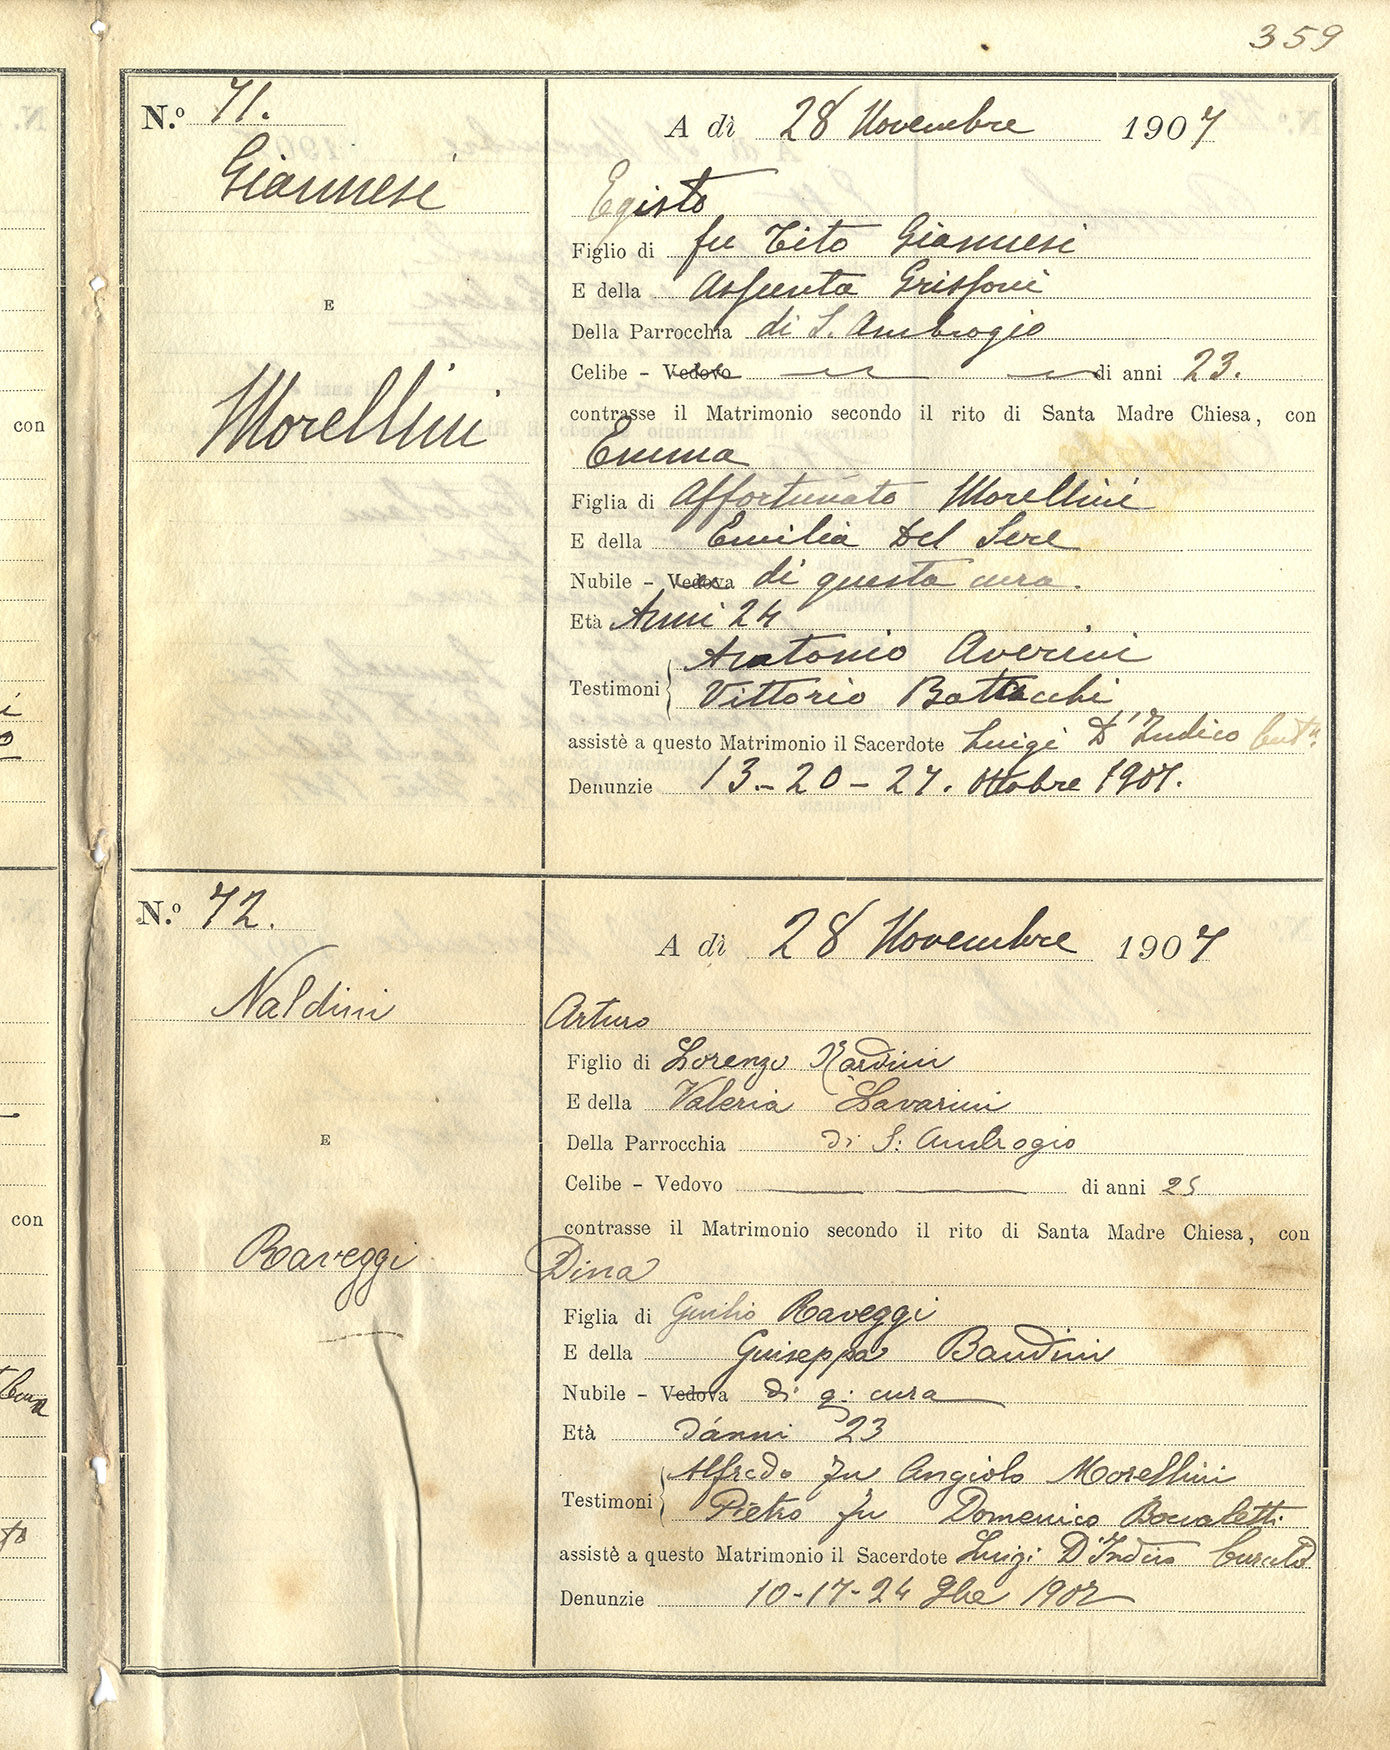 359
con
con
N.o 71.
Giannesi
E
Morellini
A dì 28 Novembre 1907
Egisto
Figlio di fu Tito Giannesi
E della Assunta Grisfoni
Della Parrocchia di S. Ambrogio
Celibe - Vedovo di anni 23.
contrasse il Matrimonio secondo il rito di Santa Madre Chiesa, con
Emma
Figlia di Affortunato Morellini
E della Emilia Del Sere
Nubile - Vedova di questa cura.
Età Anni 24
Testimoni { Antonio Averini
Vittorio Battacchi
assistè a questo Matrimonio il Sacerdote Luigi D'Indico
Denunzie 13-20-27. Ottobre 1907.
N.o 72.
Naldini
E
Raveggi
A dì 28 Novembre 1907
Arturo
Figlio di Lorenzo Nardini
E della Valeria Lavarini
Della Parrocchia di S: Ambrogio
Celibe - Vedovo di anni 25
contrasse il Matrimonio secondo il rito di Santa Madre Chiesa, con
Dina
Figlia di Guilio Raveggi
E della Guiseppa Bandini
Nubile - Vedova di q: cura
Età d'anni 23
Testimoni { Alfredo fu Angiolo Morellini
Pietro fu Domenico
assistè a questo Matrimonio il Sacerdote Luigi D'Indico Curato
Denunzie 10-17-24 9bre 1907